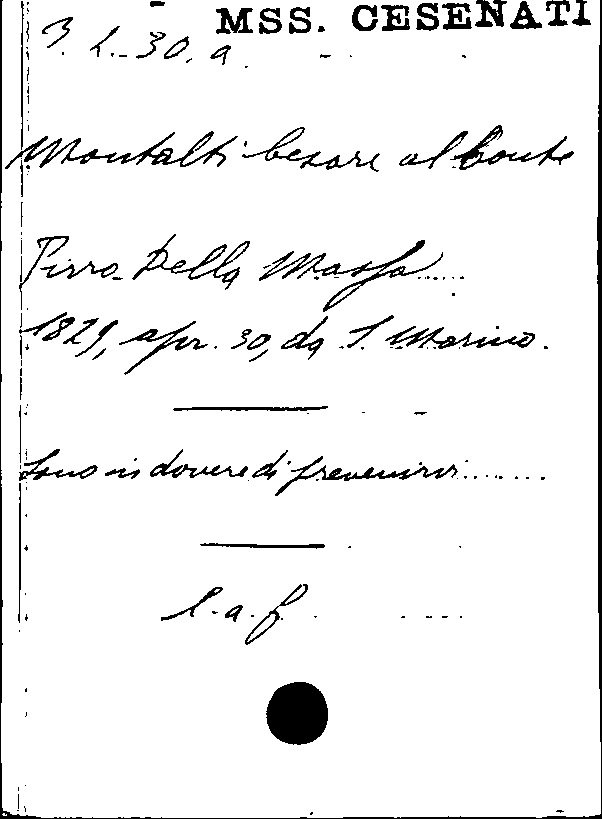 MSS. CESENATI
3. L. 30. a.
Montalti Cesare al Conte
Pirro Della Massa.....
1829, apr. 30, da S. Marino.
Sono in dovere di prevenirvi........
l. a. f.